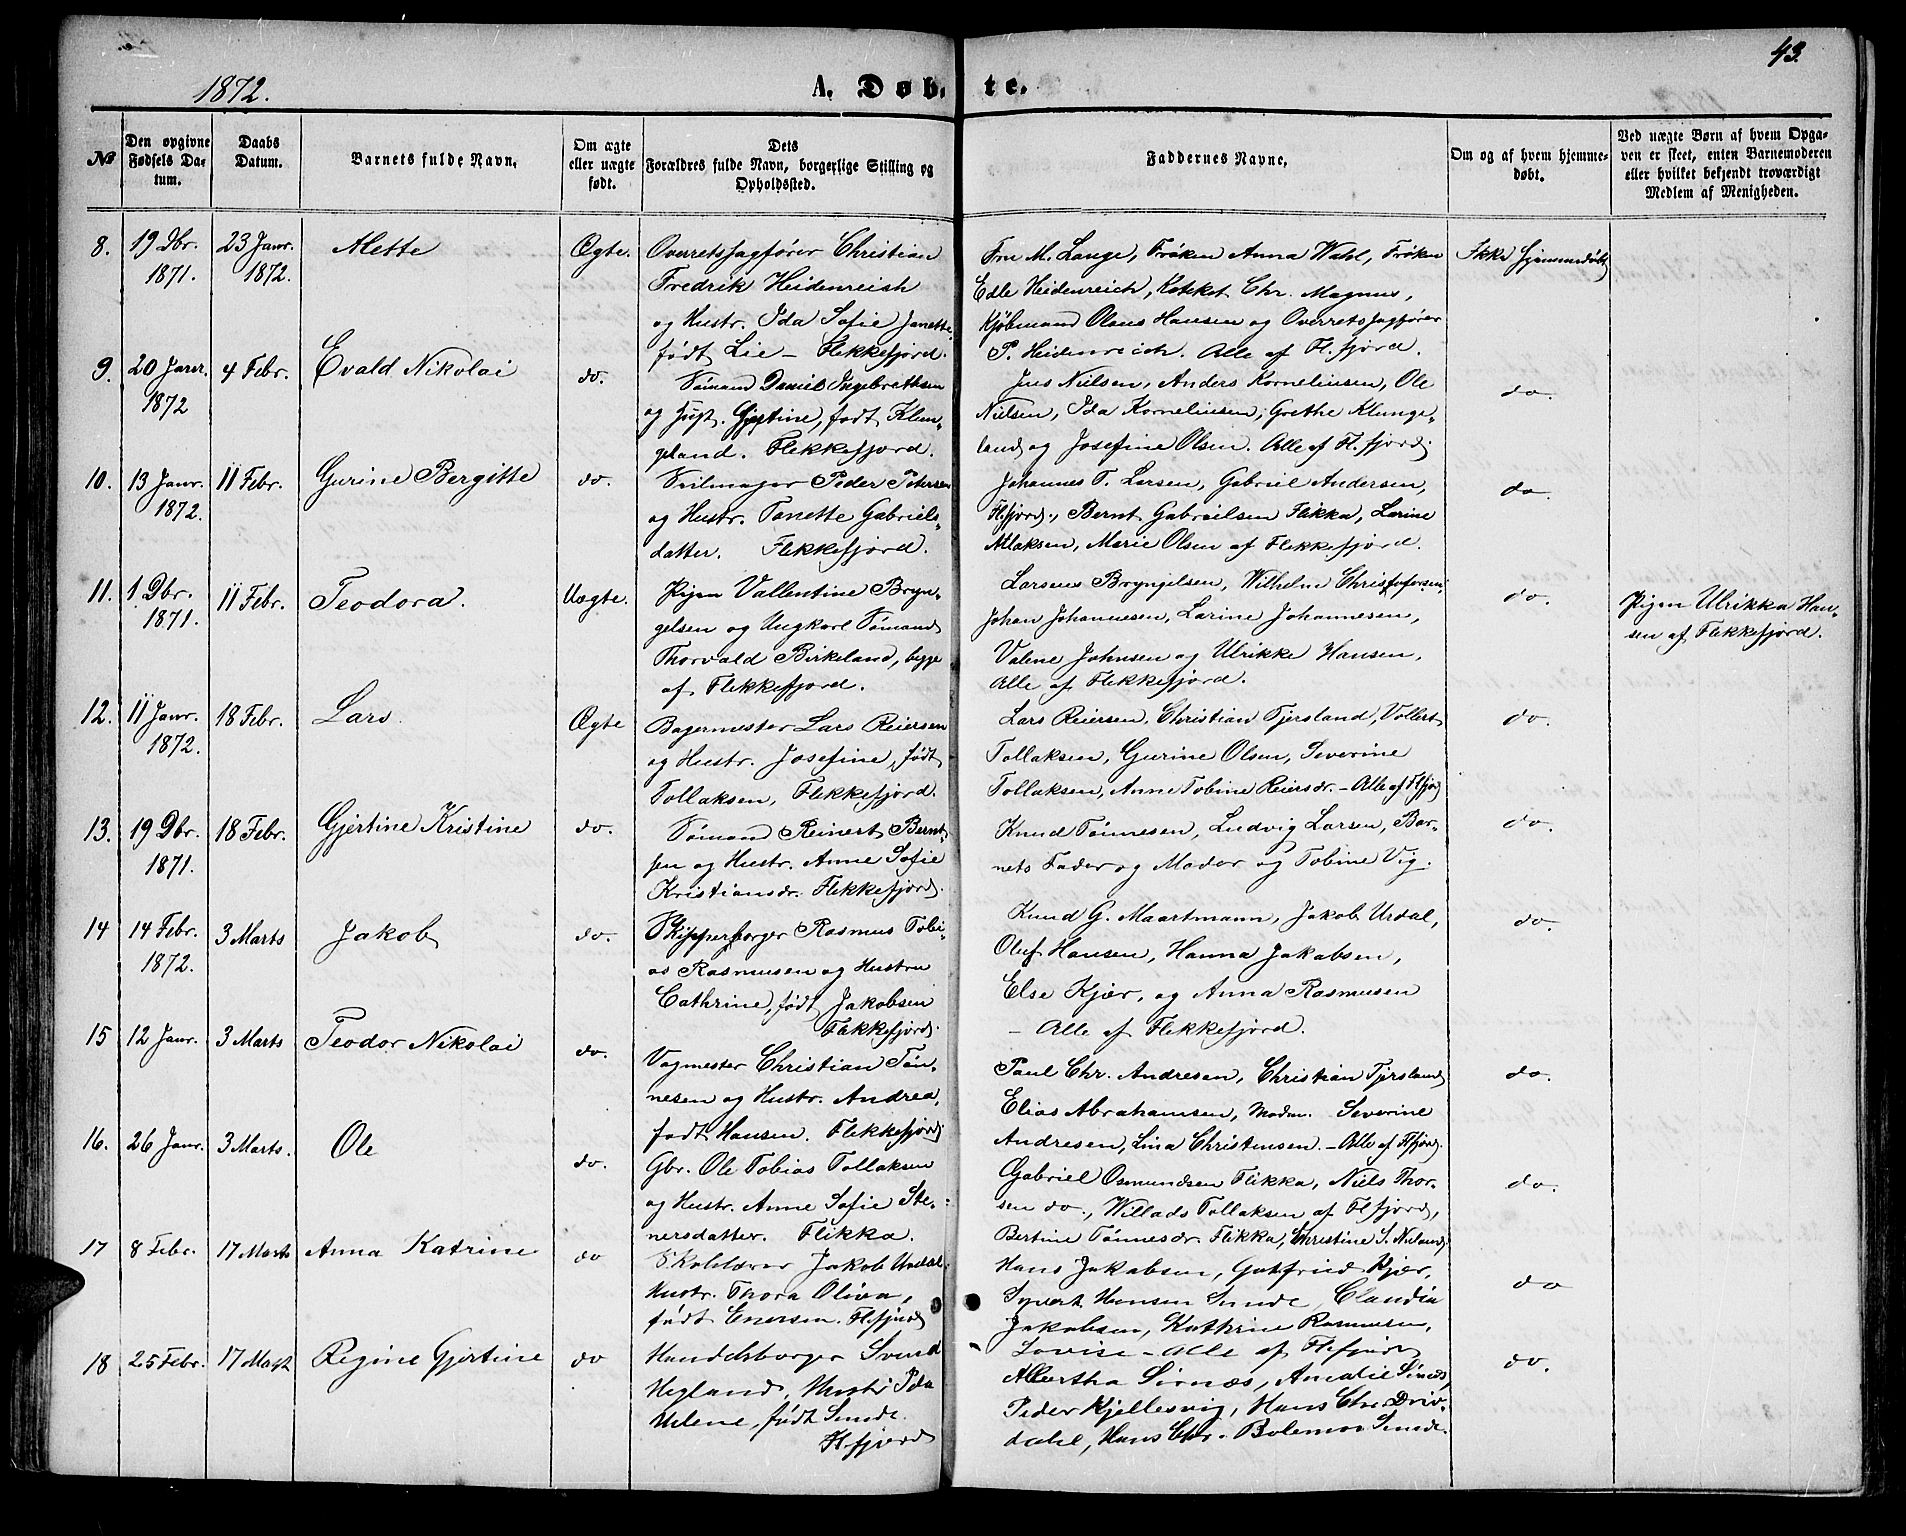 43.
1872.
A. Døb-te.
No
Den opgivne Fødsels Datum.
Daabs Datum.
Barnets fulde Navn.
Om ægte eller uægte født.
Dets Forældres fulde Navn, borgerlige Stilling og Opholdssted.
Faddernes Navne.
Om og af hvem hjemmedøbt.
Ved uægte Børn af hvem Opgaven er skeet, enten Barnemoderen eller hvilket bekjendt troværdigt Medlem af Menigheden.
8. 19 Dbr. 1871. 23 Janr. 1872. Alette Ægte.
Overretssagfører Christian
Fredrik Heidenreich
og Hustr. Ida Sofie Janette,
født Lie – Flekkefjord.
Fru M. Lange, Frøken Anna Wahl, Frøken
Edle Heidenreich, Chr. Magnus,
Kjøbmand Olaus Hansen og Overretssagfører
P. Heidenreich. Alle af Fl.fjord.
Ikke hjemmedøbt
9. 20 Janr. 1872 4 Febr. Evald Nikolai do.
Sømand Daniel Ingebrethsen
og Hust. Gjertine, født Klun-
geland. Flekkefjord.
Jens Nielsen, Anders Korneliusen, Ole
Nielsen, Ida Korneliusen, Grethe Klunge-
land og Josefine Olsen. Alle af Fl.fjord.
do.
10. 13 Janr. 1872. 11 Febr. Gurine Bergitte do.
Seilmager Peder Petersen
og Hustr. Tonette Gabriels-
datter. Flekkefjord.
Johannes T. Larsen, Gabriel Andersen,
Fl.fjord., Bernt Gabrielsen Flikka, Larine
Aslaksen, Marie Olsen af Flekkefjord.
do.
11. 1 Dbr. 1871. 11 Febr. Teodora. Uægte.
Pigen Vallentine Bryn-
gelsen og Ungkarl Sømand
Thorvald Birkeland, begge
af Flekkefjord.
Larsens Bryngelsen, Wilhelm Christofersen,
Johan Johannesen, Larine Johannesen,
Valene Johnsen og Ulrikke Hansen,
Alle af Flekkefjord.
do.
Pigen Ulrikka Han-
sen af Flekkefjord.
12. 11 Janr. 1872. 18 Febr. Lars. Ægte
Bagermester Lars Reiersen
og Hustr. Josefine, født
Tollaksen, Flekkefjord.
Lars Reiersen, Christian Tjersland, Vollert
Tollaksen, Gurine Olsen, Severine
Tollaksen, Anne Tobine Reiersdr. – Alle af Flfjord
do.
13. 19 Dbr. 1871. 18 Febr. Gjertine Kristine do.
Sømand Reinert Bernt-
sen og Hustr. Anne Sofie
Kristiansdr. Flekkefjord.
Knud Tønnesen, Ludvig Larsen, Bar-
nets Fader og Moder og Tobine Vig.
do.
14 14 Febr. 1872. 3 Marts Jakob do.
Skipperborger Rasmus Tobi-
as Rasmusen og Hustru
Cathrine, født Jakobsen
Flekkefjord.
Knud G. Maartmann, Jakob Urdal,
Oluf Hansen, Hanna Jakobsen,
Else Kjær, og Anna Rasmusen
– Alle af Flekkefjord.
do.
15 12 Janr. 3 Marts Teodor Nikolai do.
Vagmester Christian Tøn-
nesen og Hustr. Andrea,
født Hansen. Flekkefjord.
Paul Chr. Andresen, Christian Tjersland
Elias Abrahamsen, Madm. Severine
Andresen, Lina Christensen. – Alle af Flfjord.
do.
16. 26 Janr. 3 Marts. Ole do.
Gbr. Ole Tobias Tollaksen
og Hustr. Anne Sofie Ste-
nersdatter. Flikka.
Gabriel Osmundsen Flikka, Niels Thor-
sen do., Willads Tollaksen af Flfjord,
Bertine Tønnesdr. Flikka, Christine S. Nuland
do.
17 8 Febr. 17 Marts Anna Katrine do
Skolelærer Jakob Urdal,
Hustr. Thora Oliva,
født Enersen. Flfjord
Hans Jakobsen, Gotfried Kjær,
Syvert Hansen Sunde, Claudia
Jakobsen, Kathrine Rasmusen,
Lovise – Alle af Flfjord
do
18 25 Febr. 17 Marts Regine Gjertine do
Handelsborger Svend
Hegland, Hustr. Ida
Helene, født Sunde.
Flfjord
Albertha Sirnæs, Amalie Sunde,
Peder Kjellesvig, Hans Chr. Driv-
dahl, Hans Chr. Sunde.
do.